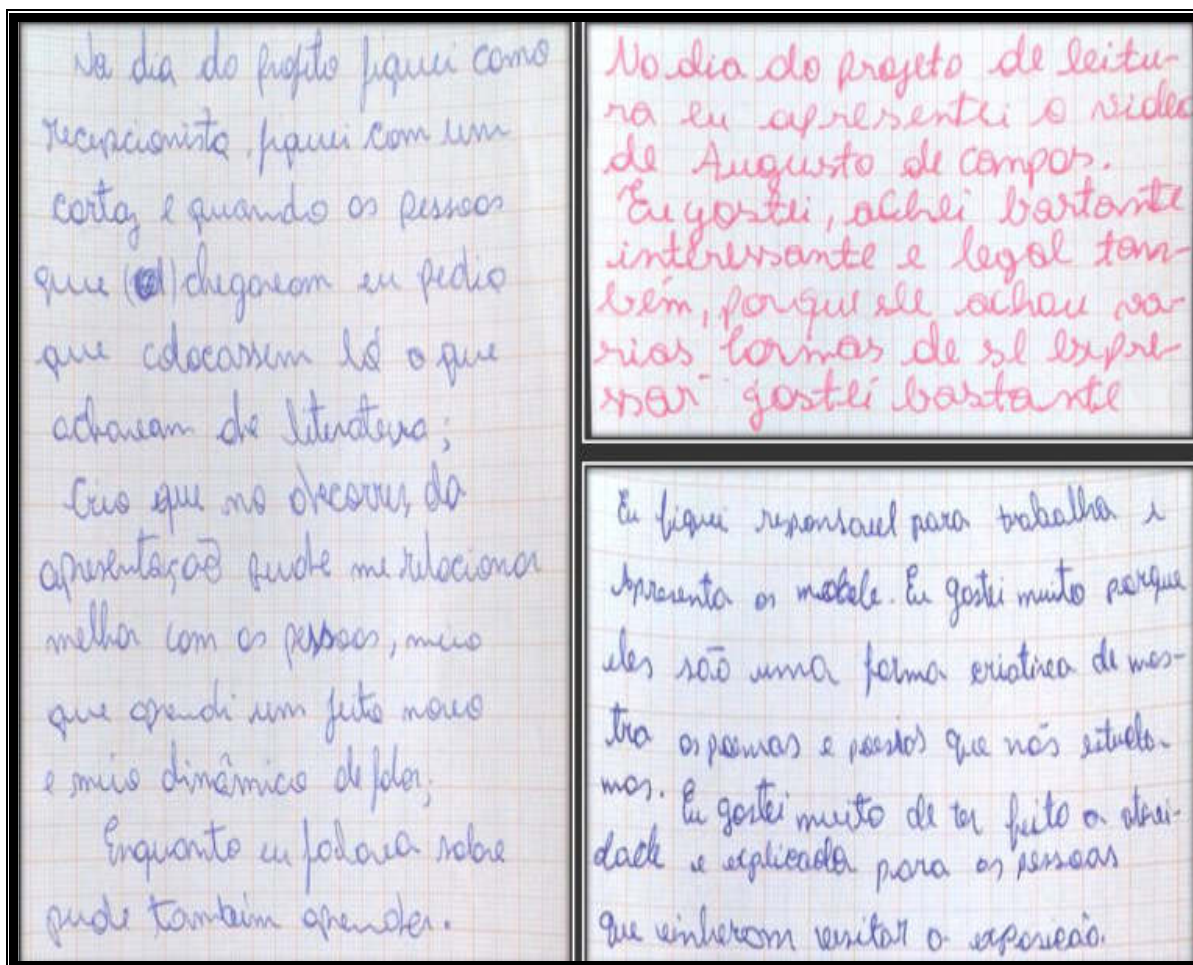 No dia do projeto fiquei como
recepcionista, fiquei com um
cartaz e quando as pessoas
que chegavam eu pedia
que colocassem lá o que
achavam de literatura;
Creio que no decorrer da
apresentação pude me relacionar
melhor com as pessoas, meio
que aprendi um jeito novo
e meio dinâmico de falar;
Enquanto eu falava sobre
pude também aprender.
No dia do projeto de leitu-
ra eu apresentei o video
de Augusto de campos.
Eu gostei, achei bastante
interessante e legal tam-
bém, porque ele achou va-
rias formas de se expre-
ssar gostei bastante
Eu fiquei reponsavel para trabalha e
apresenta os mobele. Eu gostei muito porque
eles são uma forma criativa de mos-
tra os poemas e poesias que nós estuda-
mos. Eu gostei muito de ter feito a ativi-
dade e explicada para as pessoas
que vinherom visitar a exposição.